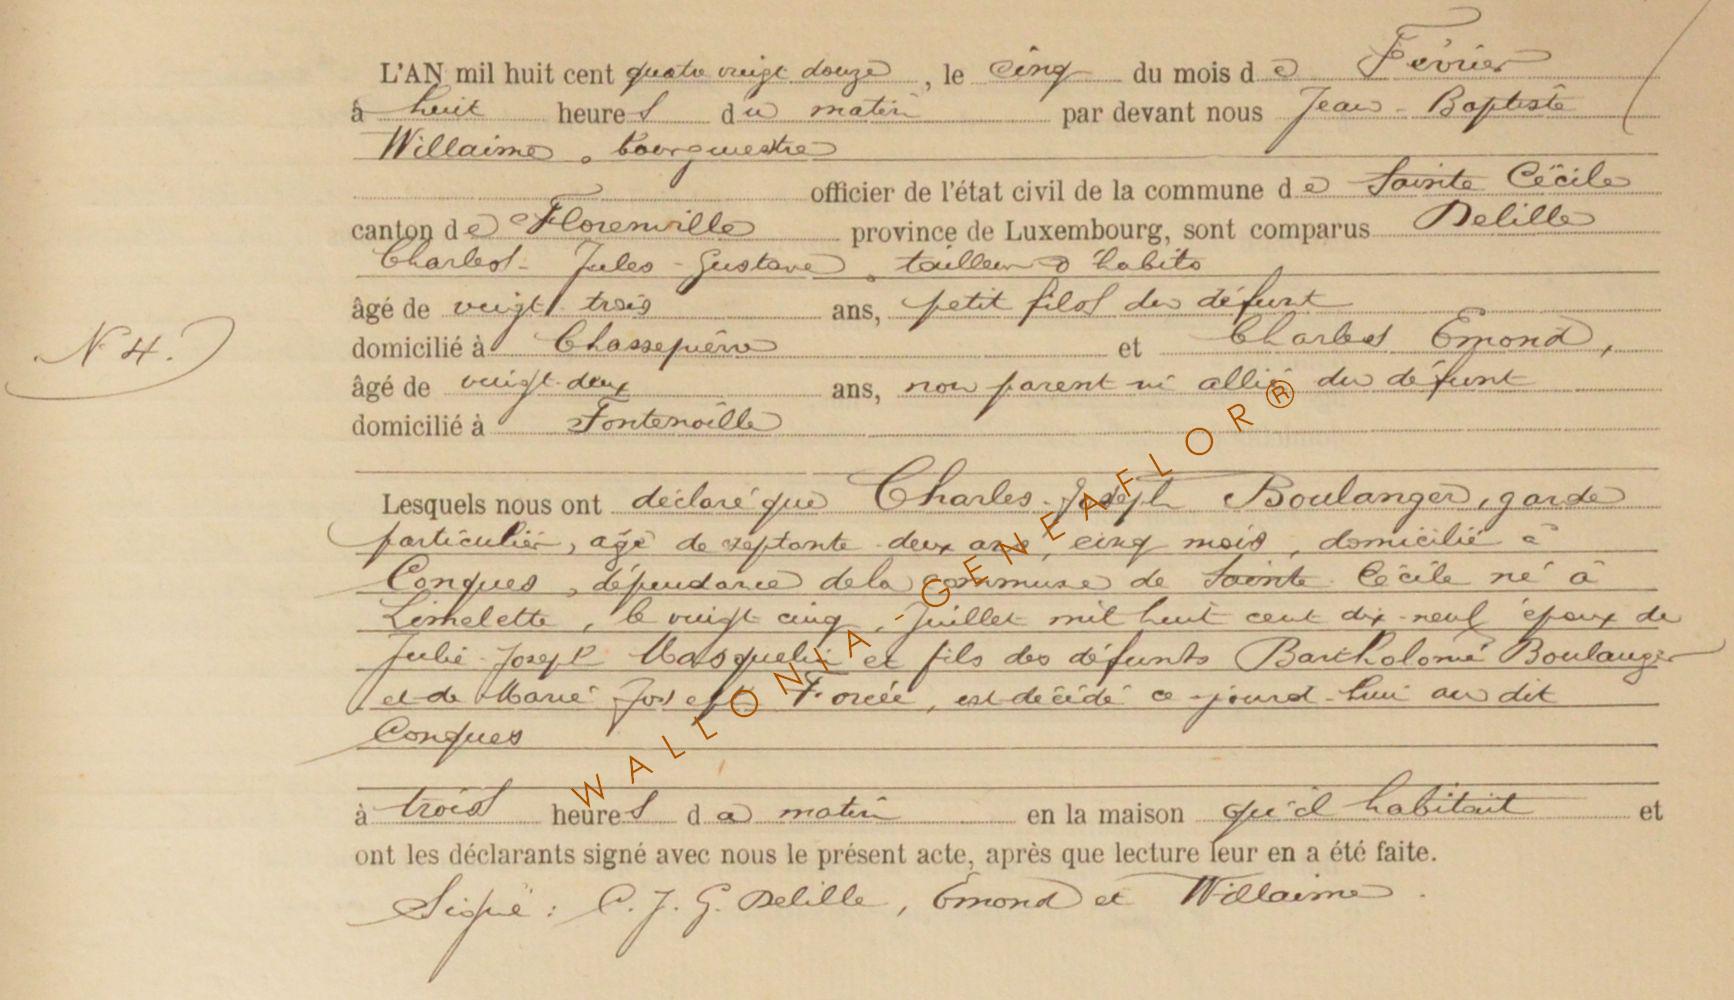 L'AN mil huit cent quatre vingt douze, le cinq du mois de Février
à huit heures du matin par devant nous Jean-Baptiste
Willaime, bourgmestre
officier de l'état civil de la commune de Sainte Cécile
canton de Florenville province de Luxembourg, sont comparus Delille
Charles-Jules-Gustave, tailleur d'habits
âgé de vingt trois ans, petit fils du défunt
domicilié à Chassepierre et Charles Emond,
N° 4.
âgé de vingt-deux ans, non parent ni allié du défunt
domicilié à Fontenoille
Lesquels nous ont déclaré que Charles-Joseph Boulanger, garde
particulier, âgé de septante deux ans, cinq mois, domicilié à
Conques, dépendance de la commune de Sainte Cécile né à
Limelette, le vingt cinq Juillet mil huit cent dix-neuf époux de
Julie-Joseph Masquelin et fils des défunts Bartholomé Boulanger
et de Marie Joseph, est décédé ce jourd'hui au dit
Conques
à trois heures du matin en la maison qu'il habitait et
ont les déclarants signé avec nous le présent acte, après que lecture leur en a été faite.
Signé : C. J. G. Delille, Emond et Willaime.
WALLONIA-GENEAFLOR®